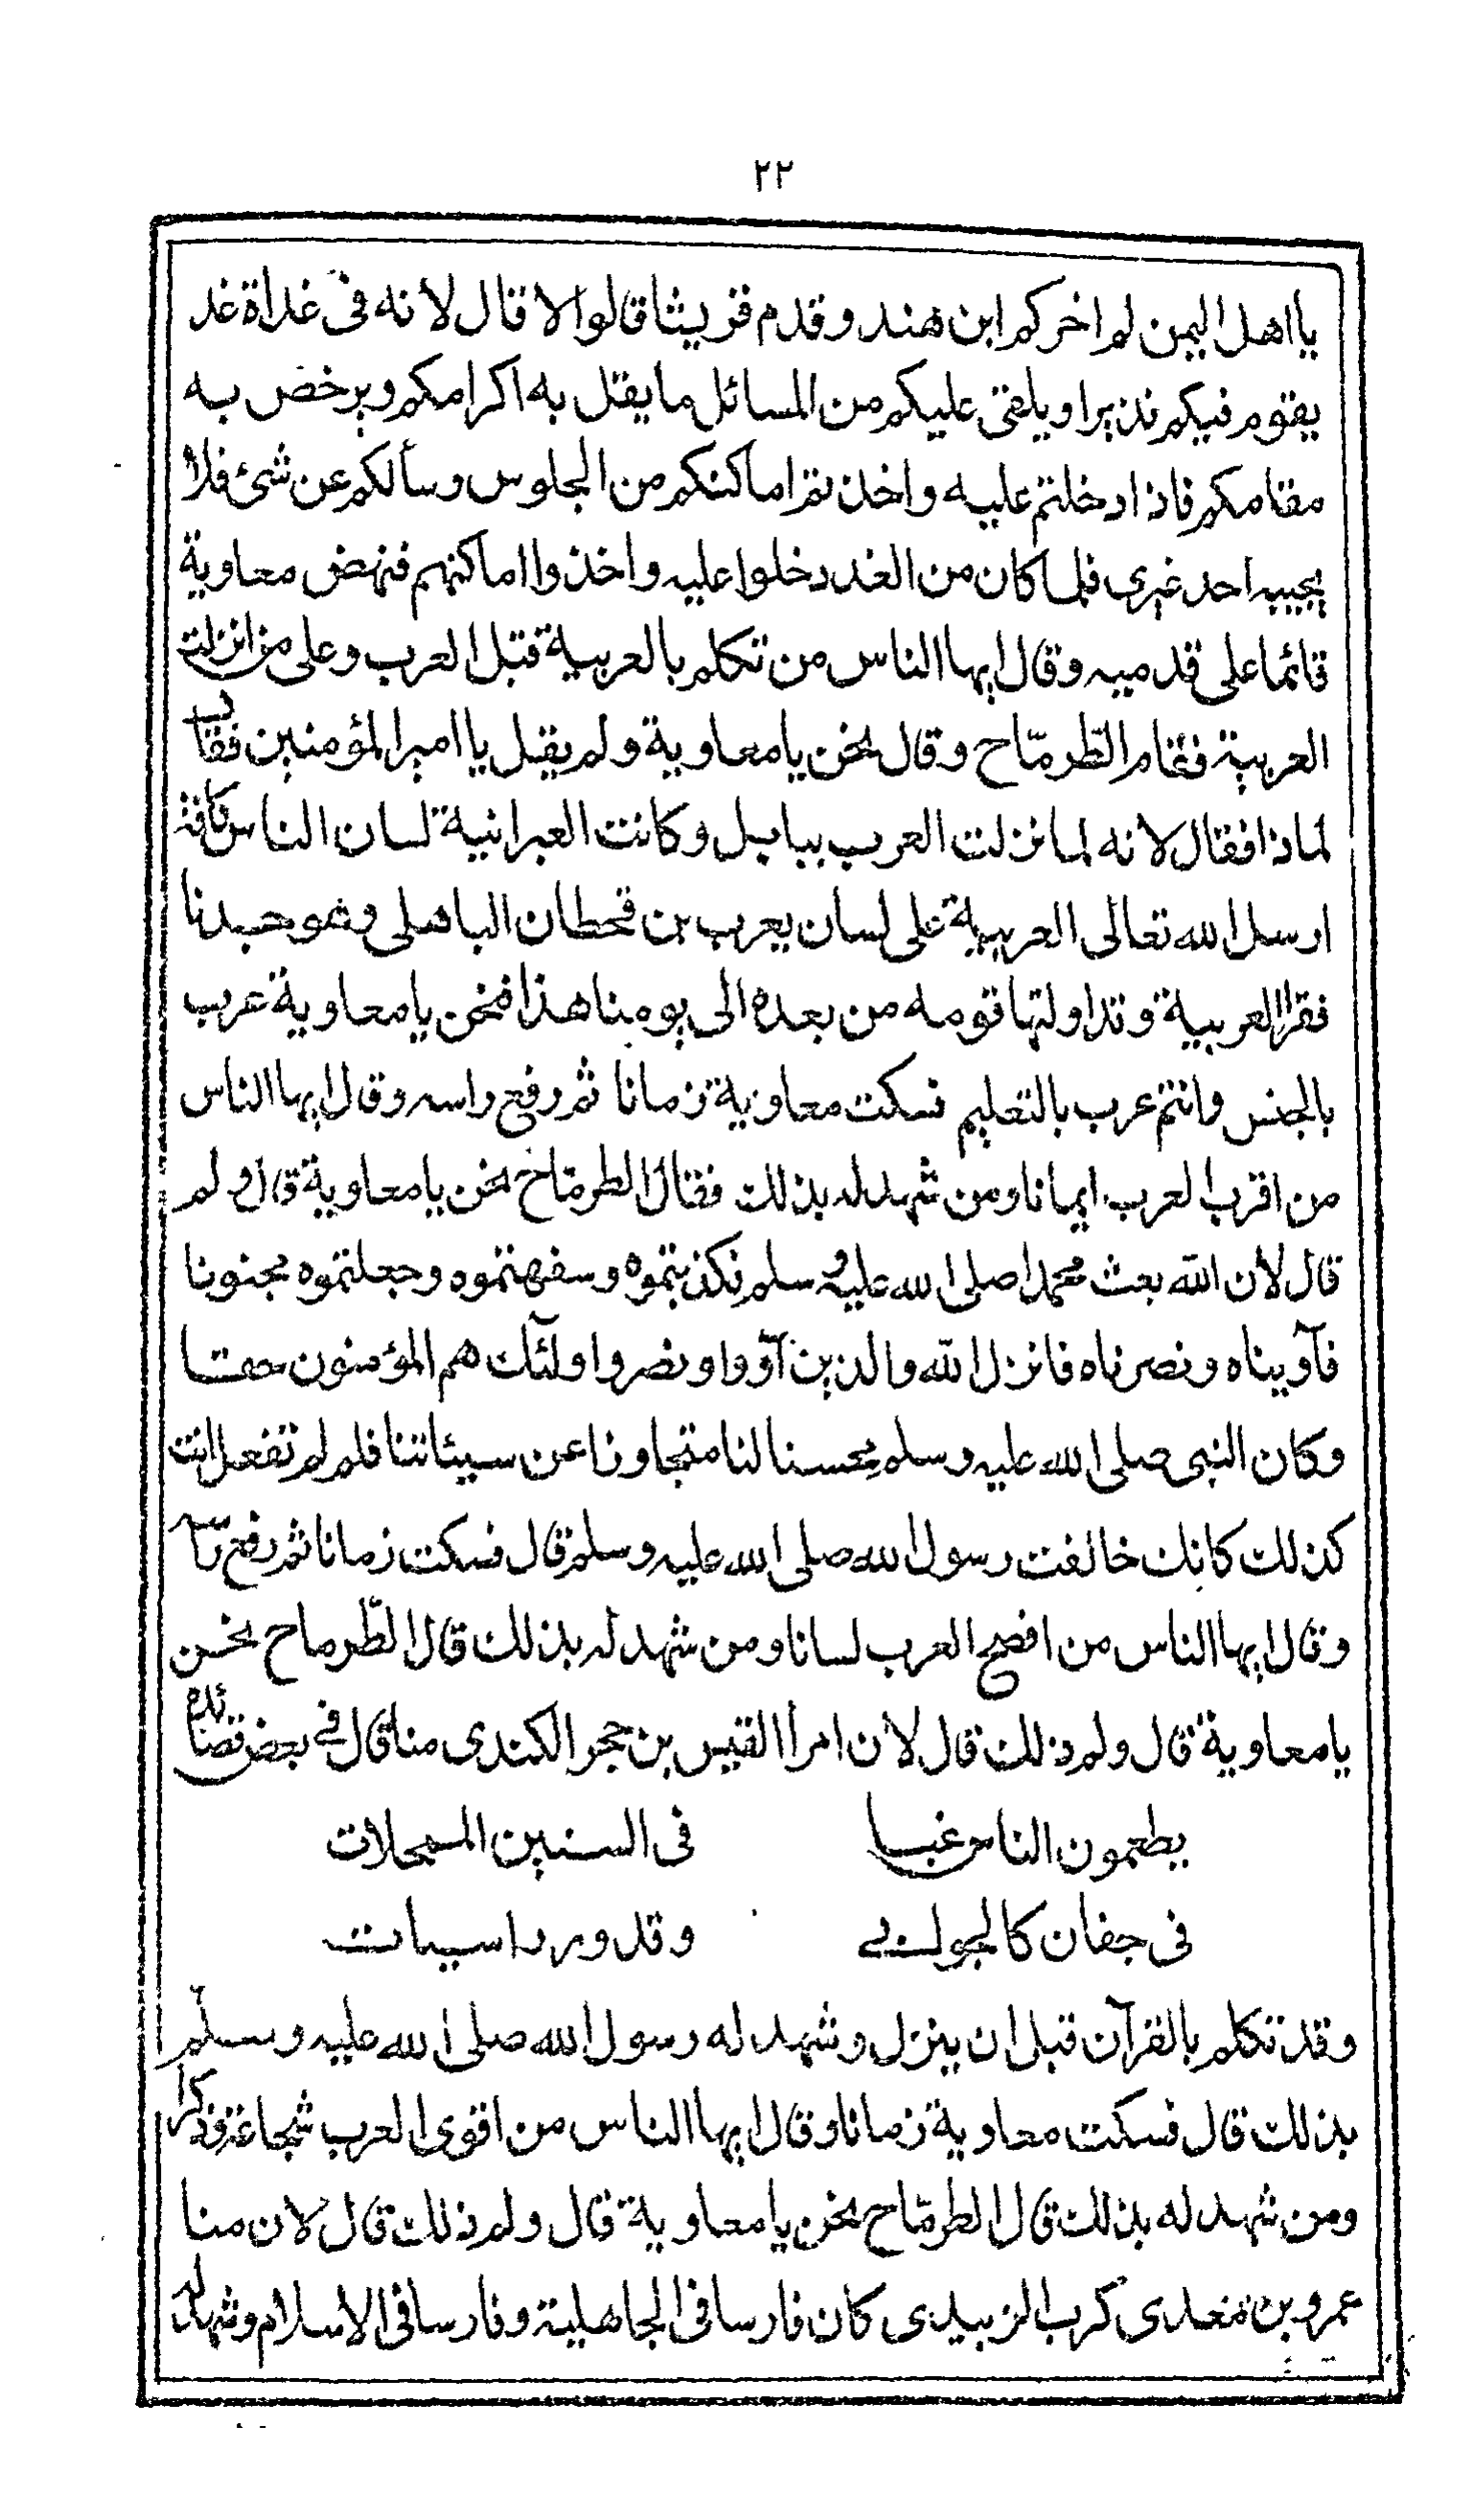 ٢٢
يا اهل اليمن لم اخركم ابن هند وقدم قريشا قالوا لا قال لانه فى غداة غد
يقوم فيكم نذيرا ويلقى عليكم من المسائل ما يقل به اكرامكم ويرخض به
مقامكم فاذا دخلتم عليه واخذتم اماكنكم من الجلوس وسألكم عن شئ فلا
يجيبه احد غيرى فلما كان من الغد دخلوا عليه واخذوا اماكنهم فنهض معاوية
قائما على قدميه وقال ايها الناس من تكلم بالعربية قبل العرب وعلى من انزلت
العربية فقام الطرمّاح وقال نحن يا معاوية ولم يقل يا امير المؤمنين فقال
لماذا فقال لانه لما نزلت العرب ببابل وكانت العبرانية لسان الناس كافة
ارسل الله تعالى العربية على لسان يعرب بن قحطان الباهلى وهو جدنا
فقرا العربية وتداولتها قومه من بعده الى يومنا هذا فنحن يا معاوية عرب
بالجنس وانتم عرب بالتعليم فسكت معاوية زمانا ثم رفع راسه وقال ايها الناس
من اقرب العرب ايمانا ومن شهد له بذلك فقال الطرمّاح نحن يا معاوية قال ولم
قال لان الله بعث محمدا صلى الله عليه وسلم فكذبتموه وسفهتموه وجعلتموه مجنونا
فآويناه ونصرناه فانزل الله والذين آووا ونصروا اولئك هم المؤمنون حقا
وكان النبى صلى الله عليه وسلم محسنا لنا متجاوزا عن سيئاتنا فلم لم تفعل انت
كذلك كانك خالفت رسول الله صلى الله عليه وسلم قال فسكت زمانا ثم رفع راسه
وقال ايها الناس من افصح العرب لسانا ومن شهد له بذلك قال الطّرماح نحن
يا معاوية قال ولم ذلك قال لان امرأ القيس بن حجر الكندى منا قال فى بعض قصائده
يطعمون الناس غبا فى السنين الممحلات
فى جفان كالجوابى وقدور راسيات
وقد تكلم بالقرآن قبل ان ينزل وشهد له رسول الله صلى الله عليه وسلّم
بذلك قال فسكت معاوية زمانا وقال ايها الناس من اقوى العرب شجاعة وذكرا
ومن شهد له بذلك قال الطرمّاح نحن يا معاوية قال ولم ذلك قال لان منا
عمرو بن معدى كرب الزبيدى كان فارسا فى الجاهلية وفارسا فى الاسلام وشهد له